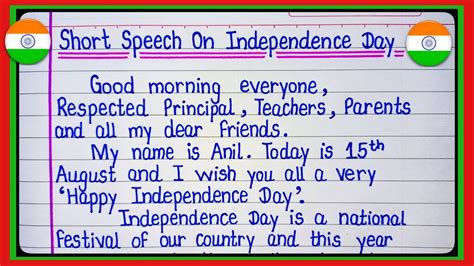 Short Speech On Independence Day
Good morning everyone,
Respected Principal, Teachers, Parents
and all my dear friends.
My name is Anil. Today is 15th
August and I wish you all a very
'Happy Independence Day'.
Independence Day is a national
festival of our country and this year